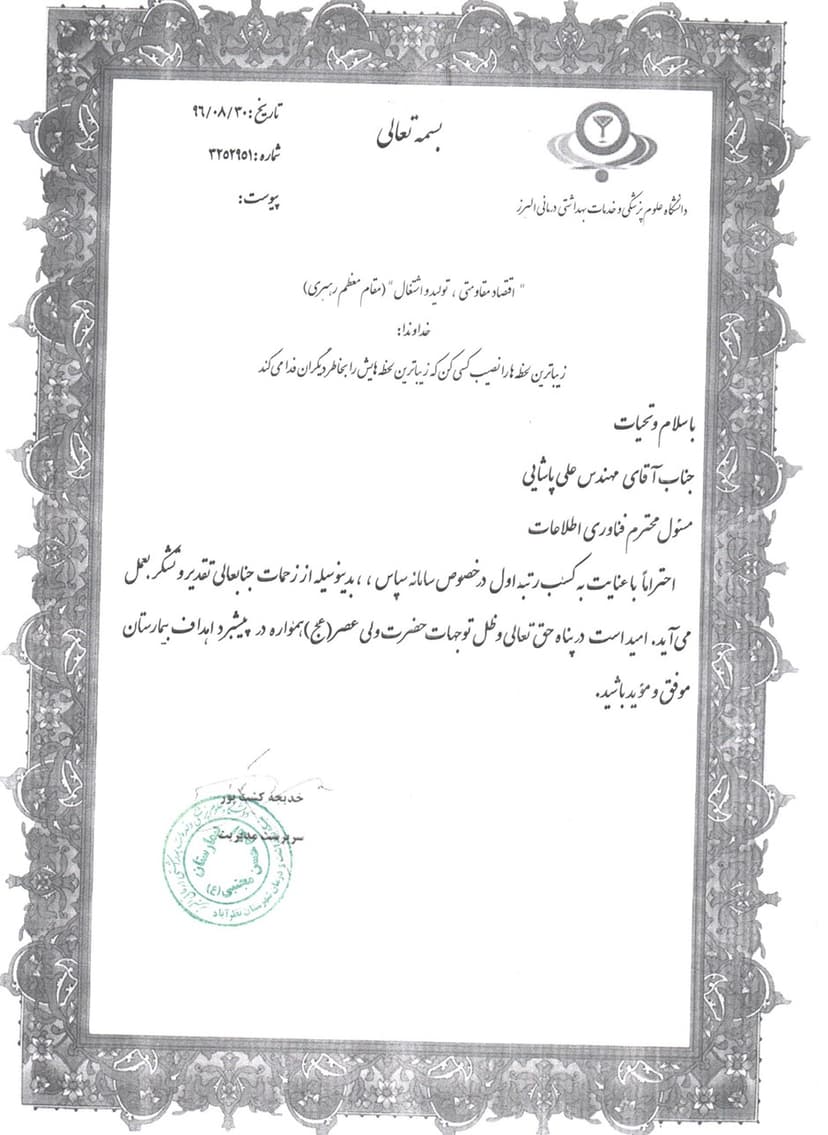 بسمه تعالی
تاریخ: ۹۶/۰۸/۳۰
شماره: ۳۲۵۲۹۵۱
پیوست:
دانشگاه علوم پزشکی و خدمات بهداشتی درمانی البرز
" اقتصاد مقاومتی ، تولید و اشتغال " (مقام معظم رهبری)
خداوندا:
زیباترین لحظه ها را نصیب کسی کن که زیباترین لحظه هایش را بخاطر دیگران فدا می کند
با سلام و تحیات
جناب آقای مهندس علی پاشایی
مسئول محترم فناوری اطلاعات
احتراماً با عنایت به کسب رتبه اول در خصوص سامانه سپاس ، ، بدینوسیله از زحمات جنابعالی تقدیر و تشکر بعمل
می آید. امید است در پناه حق تعالی و ظل توجهات حضرت ولی عصر(عج) همواره در پیشبرد اهداف بیمارستان
موفق و مؤید باشید.
خدیجه کشت پور
سرپرست مدیریت
بیمارستان
حسن مجتبی (ع)
درمان شهرستان نظرآباد